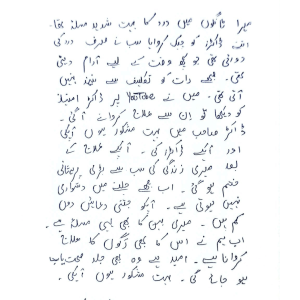 میرا ٹانگوں میں درد کا بہت شدید مسئلہ تھا۔
ڈاکٹرز کو چیک کروایا سب نے صرف درد کی
دوائی دی جو کچھ وقت کے لیے آرام دیتی
تھی۔ مجھے رات کو تکلیف سے نیند نہیں
آتی تھی۔ میں نے YouTube پر ڈاکٹر امتیاز
کو دیکھا تو ان سے علاج کروانے آ گئی۔
ڈاکٹر صاحب میں بہت مشکور ہوں آپکی
اور آپکے ڈاکٹرز کی۔ آپکے علاج کے
بعد میری زندگی کی سب سے بڑی پریشانی
ختم ہو گئی۔ اب مجھے چلنے میں دشواری
نہیں ہوتی ہے۔ آپکو جتنی دعائیں دوں
کم ہیں۔ میری بہن کا بھی یہی مسئلہ ہے۔
اب ہم نے اس کا بھی رگوں کا علاج
کروانا ہے۔ امید ہے وہ بھی جلد صحت یاب
ہو جائے گی۔ بہت مشکور ہوں آپکی۔